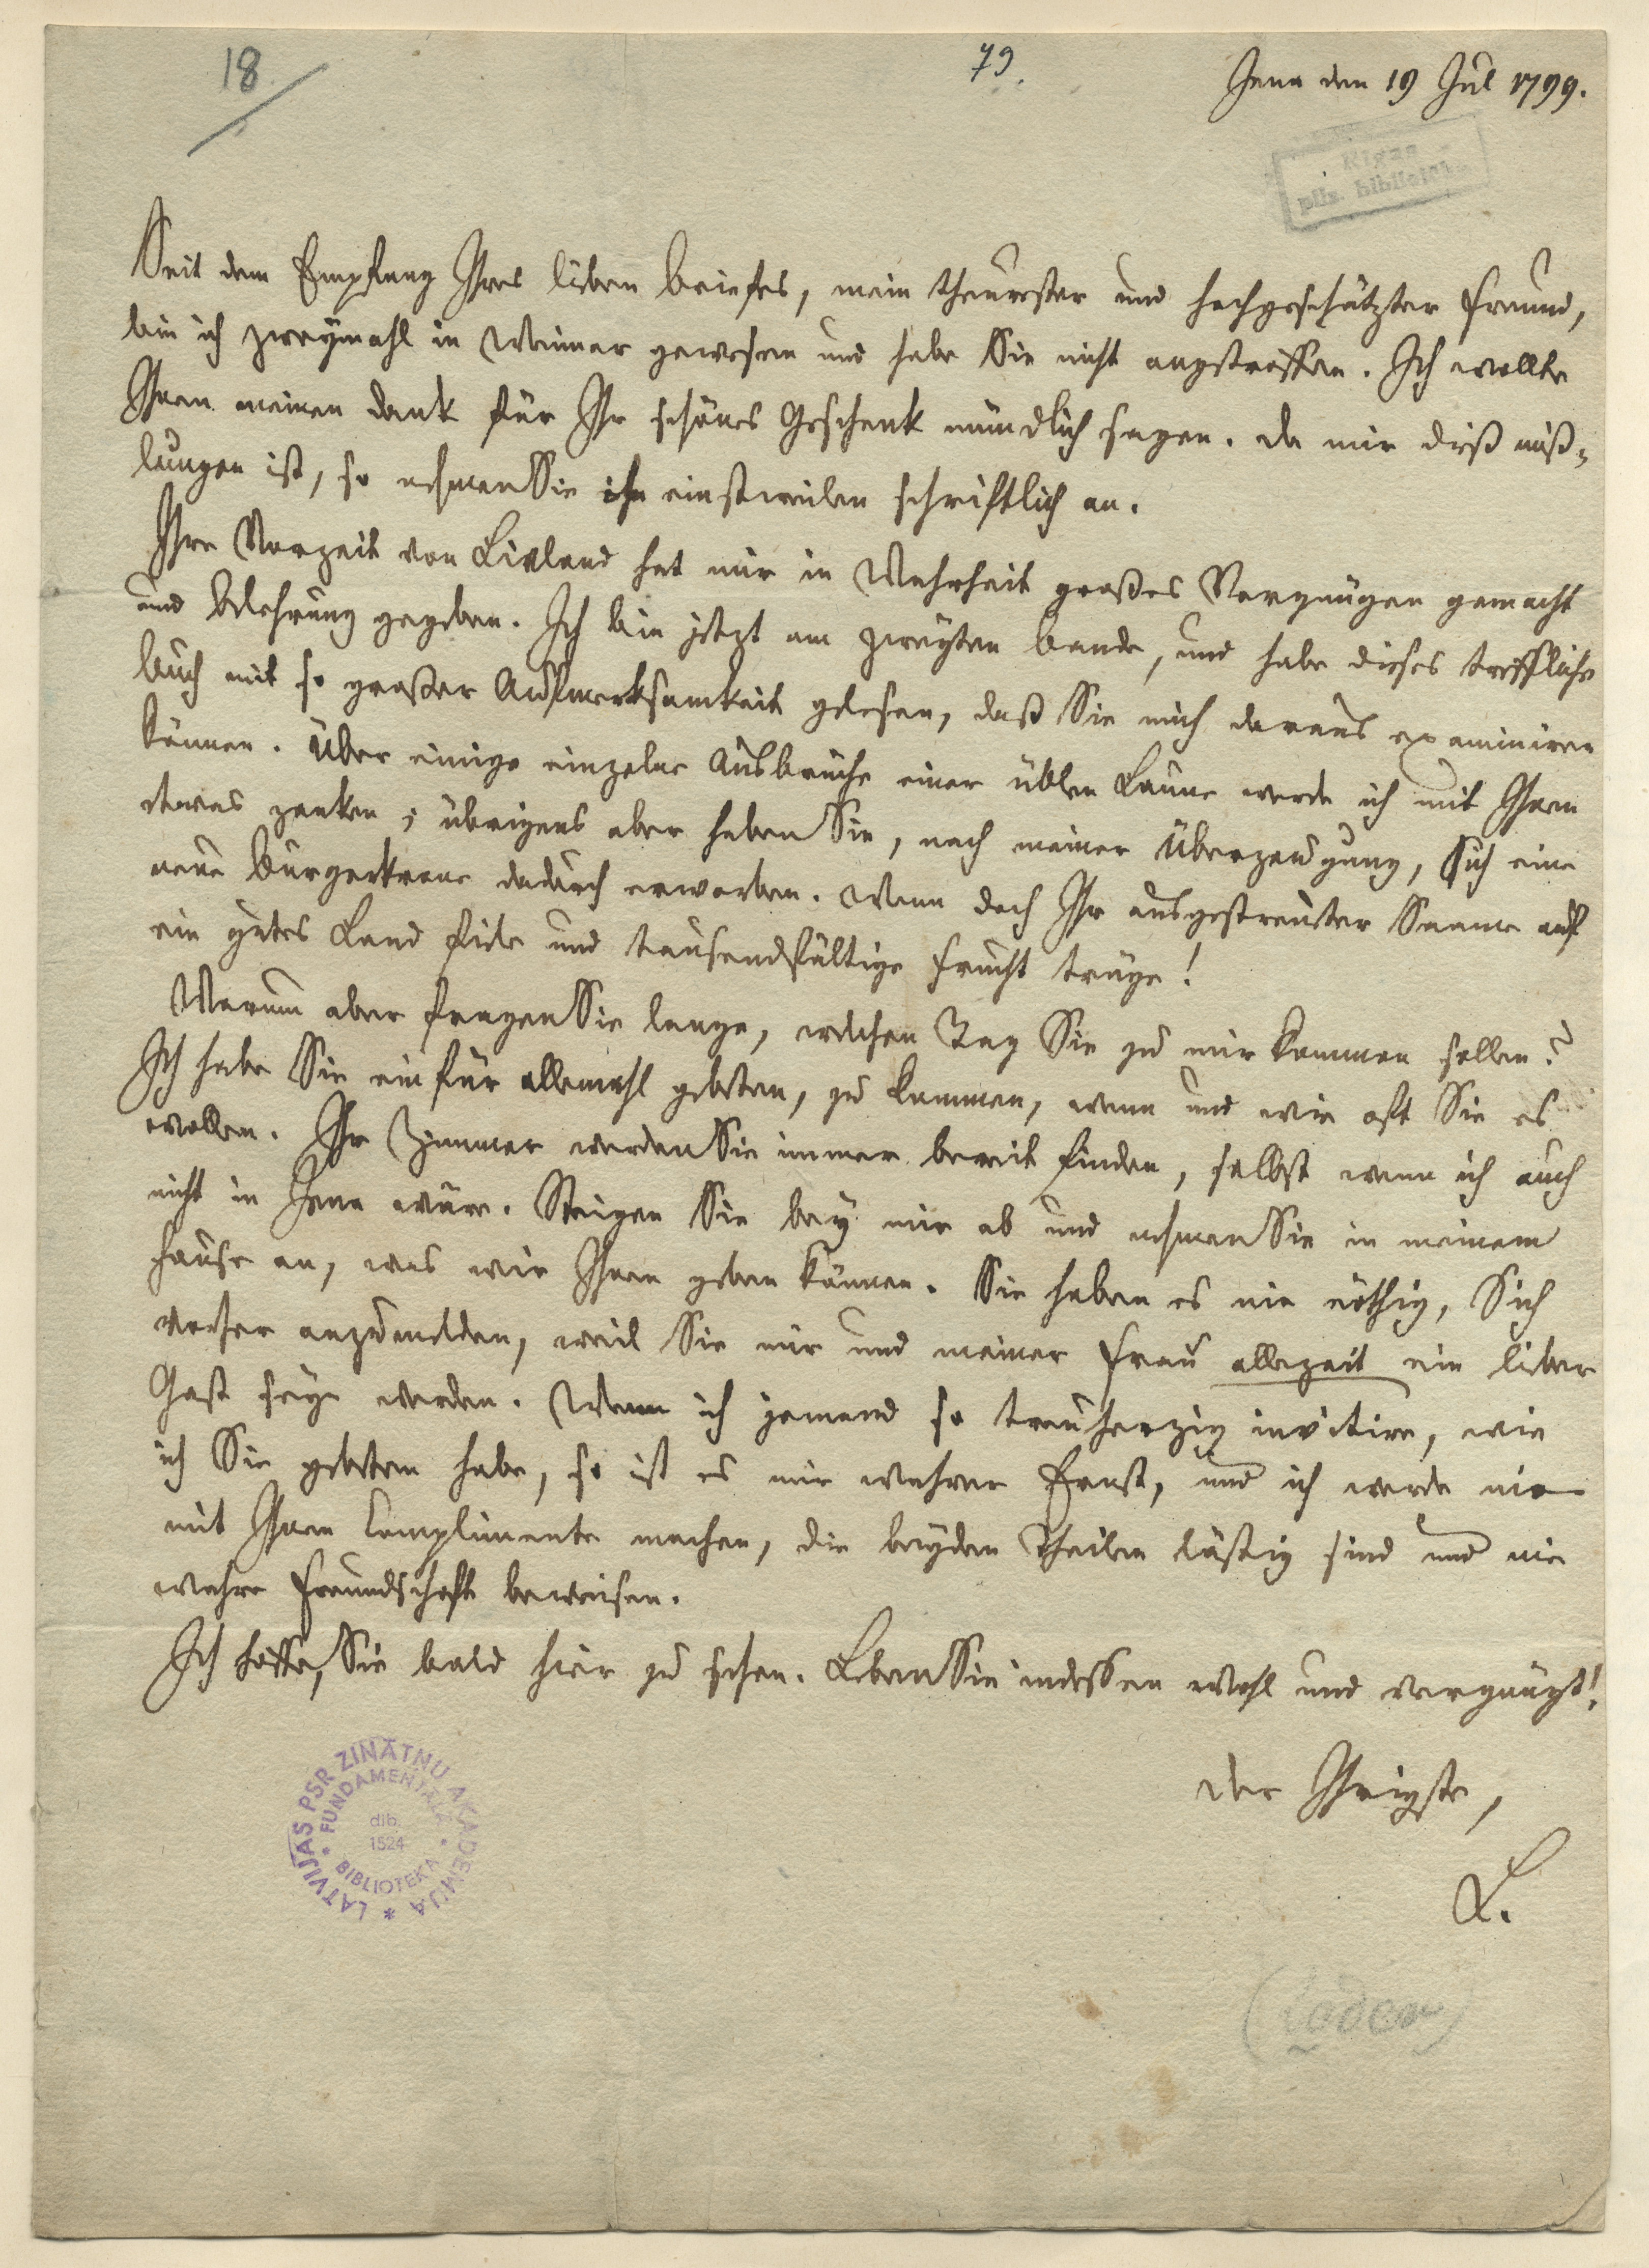 18
79.
Jena den 19 Jul 1799.
Rigas
pils. bibliotek
Seit dem Empfang Ihres lieben Briefes, mein theurester und hochgeschätzter Freund,
bin ich zweymahl in Weimar gewesen und habe Sie nicht angetroffen. Ich wollte
Ihnen meinen Dank für Ihr schönes Geschenk mündlich sagen. Da mir dieß miß-
lungen ist, so nehmen Sie ihn einstweilen schriftlich an.
Ihre Vorzeit von Livland hat mir in Wahrheit großes Vergnügen gemacht
und Belehrung gegeben. Ich bin jetzt am zweyten Bande, und habe dieses treffliche
Buch mit so großer Aufmerksamkeit gelesen, daß Sie mich daraus examiniren
können. Über einige einzelne Ausbrüche einer üblen Laune werde ich mit Ihnen
etwas zanken; übrigens aber haben Sie, nach meiner Überzeugung, sich eine
neue Bürgerkrone dadurch erworben. Wenn doch Ihr ausgestreuter Saame auf
ein gutes Land fiele und tausendfältige Frucht trüge!
Warum aber fragen Sie lange, welchen Tag Sie zu mir kommen sollen?
Ich habe Sie ein für allemahl gebeten, zu kommen, wenn und wie oft Sie es
wollen. Ihr Zimmer werden Sie immer bereit finden, selbst wenn ich auch
nicht in Jena wäre. Steigen Sie bey mir ab und nehmen Sie in meinem
Hause an, was wir Ihnen geben können. Sie haben es nie nöthig, Sich
vorher anzumelden, weil Sie mir und meiner Frau allezeit ein lieber
Gast seyn werden. Wenn ich jemand so treuherzig invitire, wie
ich Sie gebeten habe, so ist es mir wahrer Ernst, und ich werde nie
mit Ihnen Complimente machen, die beyden Theilen lästig sind und nie
wahre Freundschaft beweisen.
Ich hoffe, Sie bald hier zu sehen. Leben Sie indessen wohl und vergnügt!
Der Ihrigste,
L.
LATVIJAS PSR ZINĀTŅU AKADĒMIJA
FUNDAMENTĀLĀ
dib.
1524
BIBLIOTEKA
(Loder)